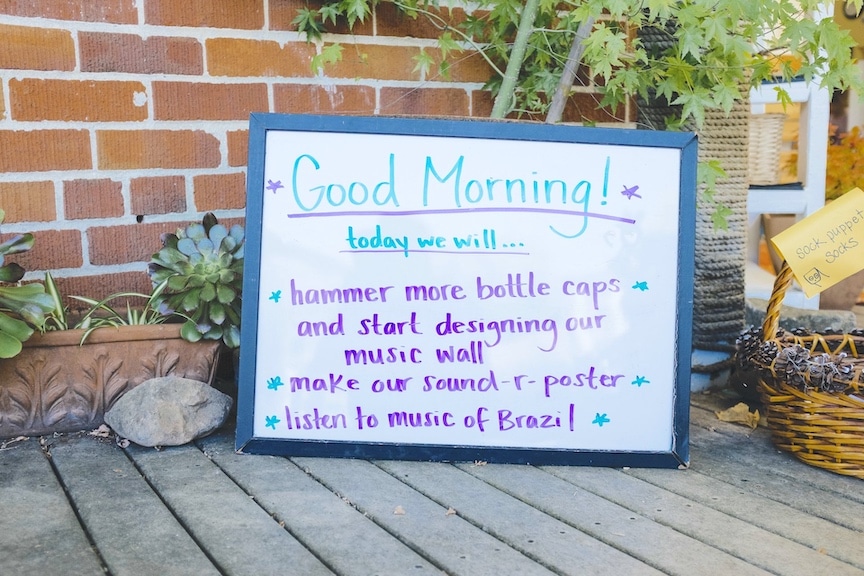 Good Morning!
today we will...
hammer more bottle caps
and start designing our
music wall
make our sound-r-poster
listen to music of Brazil
sock puppet
socks